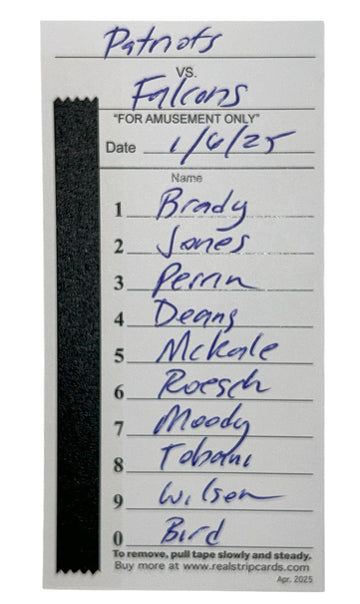 Patriots
VS.
Falcons
"FOR AMUSEMENT ONLY"
Date 1/6/25
Name
1 Brady
2 Jones
3 Perrin
4 Deans
5 McKale
6 Roesch
7 Moody
8 Tobani
9 Wilson
0 Bird
To remove, pull tape slowly and steady.
Buy more at www.realstripcards.com
Apr. 2025